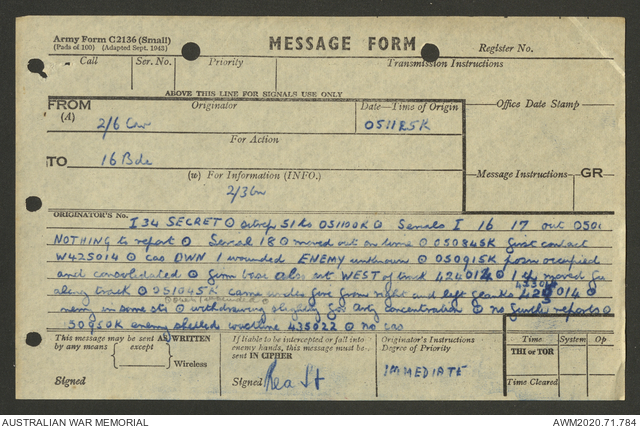 Army Form C2136 (Small)
(Pads of 100) (Adapted Sept. 1943)
MESSAGE FORM
Register No.
Call Ser. No. Priority Transmission Instructions
ABOVE THIS LINE FOR SIGNALS USE ONLY
FROM Originator Date—Time of Origin Office Date Stamp
(A) 2/6 Cav 051125K
For Action
TO 16 Bde
(w) For Information (INFO.) Message Instructions GR
2/3 Bn
ORIGINATOR'S No.
I 34 SECRET ⊙ sitrep 51 to 051100K ⊙ Serials I 16 17 out
NOTHING to report ⊙ Serial 18 ⊙ moved out on time ⊙ 050845K first contact
W425014 ⊙ cas OWN 1 wounded ENEMY unknown ⊙ 050915K posn occupied
and consolidated ⊙ firm base also est WEST of track 424014 ⊙ 14 moved
along track ⊙ 051045K came under fire from right and left flanks 425014 ⊙
withdrawing slightly for arty concentration ⊙ no further reports ⊙
50950K enemy shelled 435022 ⊙ no cas
This message may be sent AS WRITTEN
by any means except
Wireless
Signed
If liable to be intercepted or fall into
enemy hands, this message must be
sent IN CIPHER
Signed Rea Lt
Originator's Instructions
Degree of Priority
IMMEDIATE
Time System Op
THI or TOR
Time Cleared
AUSTRALIAN WAR MEMORIAL AWM2020.71.784